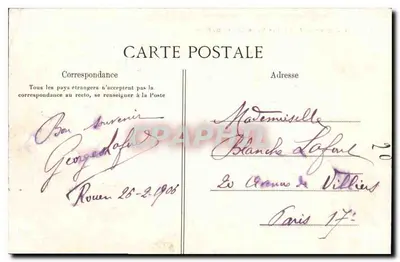 CARTE POSTALE
Correspondance
Tous les pays étrangers n'acceptent pas la
correspondance au recto, se renseigner à la Poste
Adresse
Bon souvenir
Georges Lafont
Rouen 26-2-1906
Mademoiselle
Blanche Lafont
20 Avenue de Villiers
Paris 17e